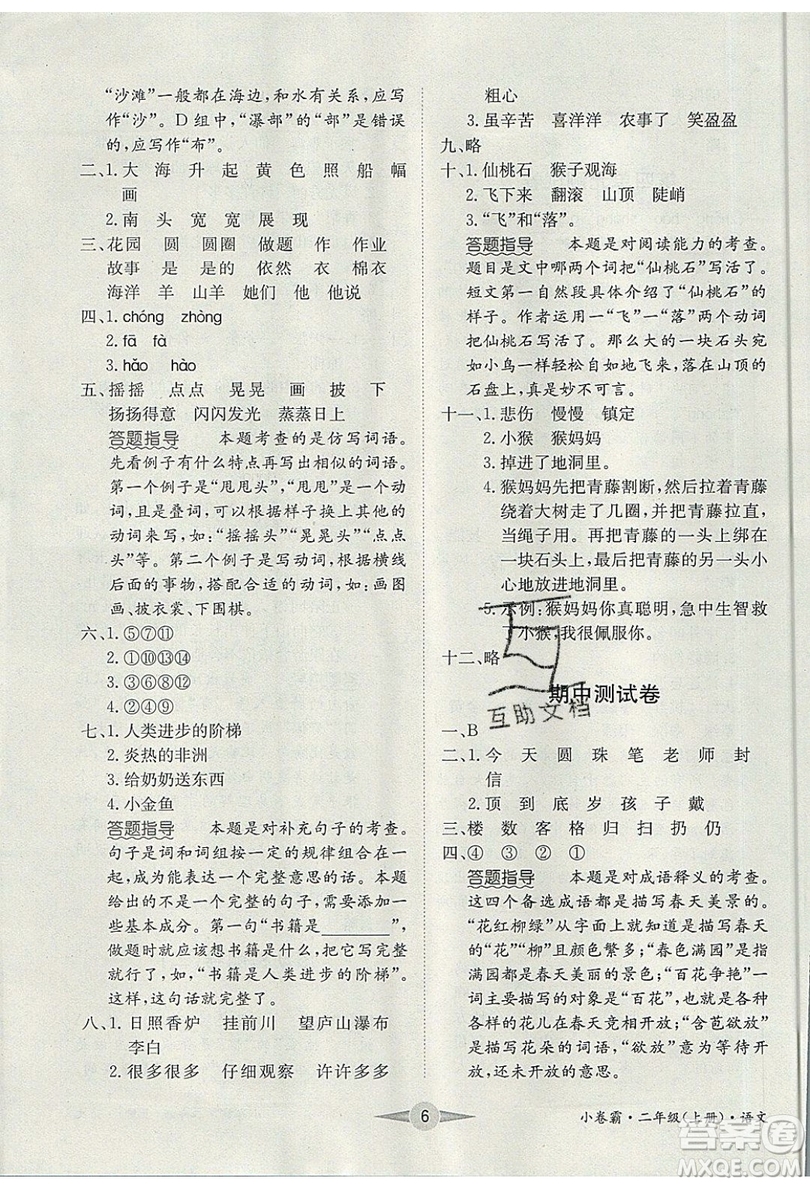 “沙滩”一般都在海边,和水有关系,应写
作“沙”。D组中,“瀑部”的“部”是错误
的,应写作“布”。
二、1.大 海 升 起 黄 色 照 船 幅
画
2.南 头 宽 宽 展 现
三、花园 圆 圆圈 做题 作 作业
故事 是 是的 依然 衣 棉衣
海洋 羊 山羊 她们 他 他说
四、1.chóng zhòng
2.fā fà
3.hǎo hào
五、摇摇 点点 晃晃 画 披 下
扬扬得意 闪闪发光 蒸蒸日上
答题指导 本题考查的是仿写词语。
先看例子有什么特点再写出相似的词语。
第一个例子是“甩甩头”,“甩甩”是一个动
词,且是叠词,可以根据样子换上其他动
词来写,如:“摇摇头”“晃晃头”“点点
头”等。第二个例子是写动词,根据横线
后面的事物,搭配合适的动词,如:画图
画、披衣裳、下围棋。
六、1.⑤⑦⑪
2.①⑩⑬⑭
3.③⑥⑧⑫
4.②④⑨
七、1.人类进步的阶梯
2.炎热的非洲
3.给奶奶送东西
4.小金鱼
答题指导 本题是对补充句子的考查。
句子是词和词组按一定的规律组合在一
起,能表达一个完整意思的话。本题给
出的是不完整的句子,需要补充完整一
些基本成分。第一句“书籍是______”,
做题时就应该想书籍是什么,把它写完
整就行了,如:“书籍是人类进步的阶梯”。
这样,这句话就完整了。
八、1.日照香炉 挂前川 望庐山瀑布
李白
2.很多很多 仔细观察 许许多多
粗心
3.虽辛苦 喜洋洋 农事了 笑盈盈
九、略
十、1.仙桃石 猴子观海
2.飞下来 翻滚 山顶 陡峭
3.“飞”和“落”。
答题指导 本题是对阅读能力的考查。
题目是文中哪两个词把“仙桃石”写活了。
短文第一自然段具体介绍了“仙桃石”的
样子。作者运用“飞”“落”两个动词就
把仙桃石写活了。那么大的一块石头宛
如小鸟一样轻松自如地飞来,落在山顶的
石盘上,真是妙不可言。
十一、1.悲伤 慢慢 镇定
2.小猴 猴妈妈
3.掉进了地洞里。
4.猴妈妈先把青藤割断,然后拉着青藤
绕着大树走了几圈,并把青藤拉直,
当绳子用。再把青藤的一头上绑在
一块石头上,把青藤的另一头小
心地放进地洞里。
5.示例:猴妈妈你真聪明,急中生智救
了小猴,我很佩服你。
十二、略
期中测试卷
一、B
二、1.今 天 圆 珠 笔 老 师 封
信
2.顶 到 底 岁 孩 子 戴
三、楼 数 客 格 归 扫 扔 仍
四、④ ③ ② ①
答题指导 本题是对成语释义的考查。
这四个备选成语的意思都是描写春天的。
“花红柳绿”从字面上可以看出是描写春天
的“花”“柳”并且颜色繁多;“春色满园”可
以看出都是春天美丽的景色;“百花争艳”一
词主要描写的对象是“百花”,应该是各种
各样的花儿在春天竞相开放;“含苞欲放”
是描写花朵的词语,“欲放”意思是快要开放,
还未开放的意思。
互助文档
6
小卷霸·二年级(上册)·语文
答案圈
MXQE.COM